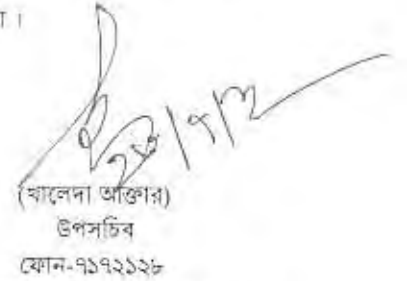 (খালেদা আক্তার)
উপসচিব
ফোন-৭১৭২১২৮